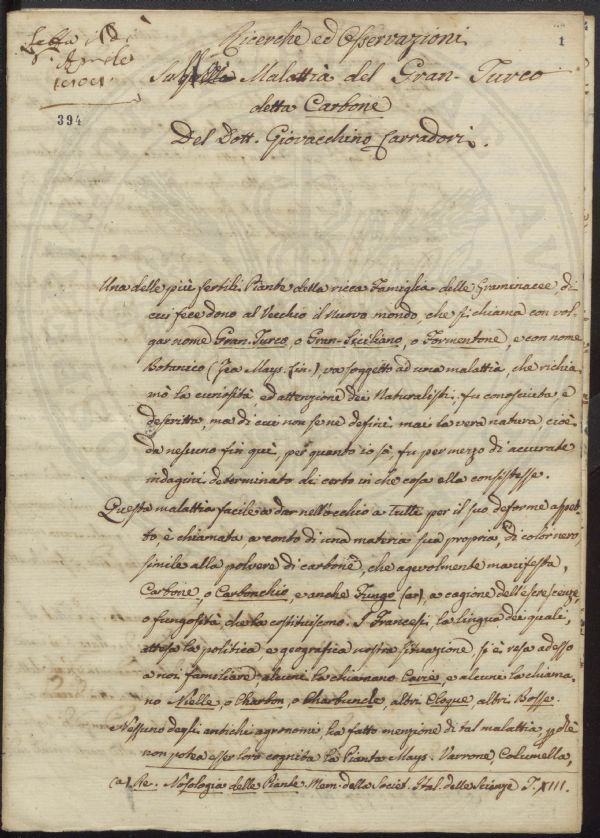 Letta
Aprile
394
1
Ricerche ed Osservazioni
Sulla Malattia del Gran-Turco
detta Carbone
Del Dott. Giovacchino Carradori.
Una delle più fertili Piante della ricca Famiglia delle Graminacee, di
cui fece dono al Vecchio il Nuovo mondo, che si chiama con vol-
gar nome Gran-Turco, o Gran-Siciliano, o Formentone, e con nome
Botanico (Zea Mays. Lin.), va soggetto ad una malattia, che richia-
mò la curiosità ed attenzione dei Naturalisti. fu conosciuta e
descritta, ma di cui non se ne definì mai la vera natura, cioè
da nessuno fin quì, per quanto io sò, fu per mezzo di accurate
indagini determinato di certo in che cosa ella consistesse.
Questa malattia facile a dar nell'occhio a tutti per il suo deforme aspet-
to è chiamata a conto di una materia sua propria, di color nero,
simile alla polvere di carbone, che agevolmente manifesta,
Carbone, o Carbonchio, e anche Fungo (a) a cagione dell'escrescenze,
o fungosità, che la costituiscono. I Francesi, la lingua dei quali,
attesa la politica e geografica nostra situazione, si è resa adesso
a noi familiare alcuni la chiamano Carie, e alcuni la chiama-
no Nielle, o Charbon, o Charbuncle, altri Cloque altri Bosse.
Nessuno degli antichi agronomi ha fatto menzione di tal malattia,
non potea esser loro cognita la Pianta Mays. Varrone Columella,
(a) Re. Nosologia delle Piante. Mem. della Societ. Ital. delle Scienze T. XIII.